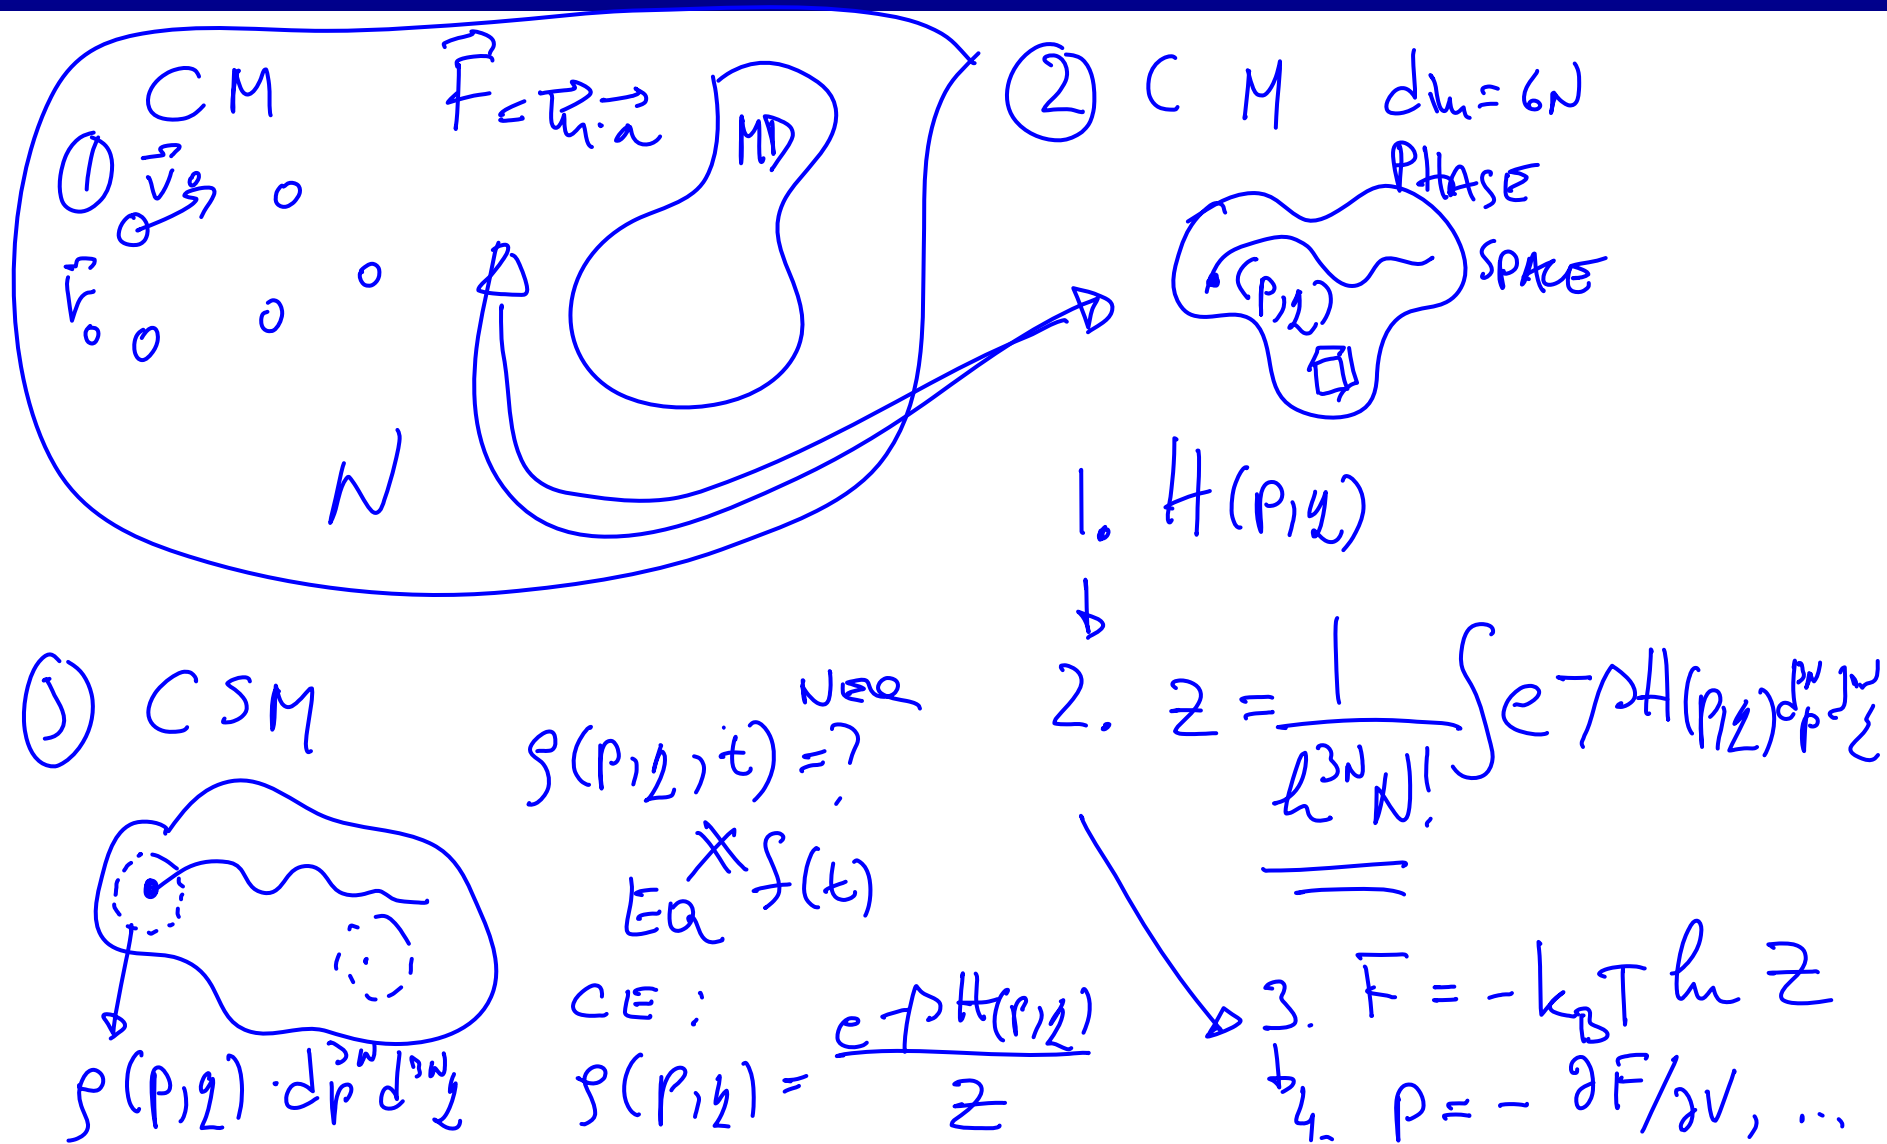 CM
F⃗ = m·a⃗
MD
① v⃗₀
r⃗₀
N
② CM dim = 6N
PHASE
SPACE
(p,q)
1. H(p,q)
2. Z = 1/(h^{3N} N!) ∫ e^{-βH(p,q)} d^{3N}p d^{3N}q
3. F = -k_B T ln Z
4. P = - ∂F/∂V, ...
③ CSM
NEQ
ρ(p,q,t) = ?
EQ f(t)
CE:
ρ(p,q) = e^{-βH(p,q)} / Z
ρ(p,q)·d^{3N}p d^{3N}q